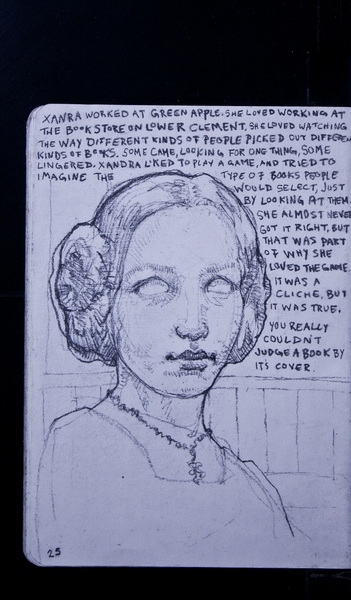 XANRA WORKED AT GREEN APPLE. SHE LOVED WORKING AT
THE BOOKSTORE ON LOWER CLEMENT. SHE LOVED WATCHING
THE WAY DIFFERENT KINDS OF PEOPLE PICKED OUT DIFFEREN
KINDS OF BOOKS. SOME CAME, LOOKING FOR ONE THING, SOME
LINGERED. XANDRA LIKED TO PLAY A GAME, AND TRIED TO
IMAGINE THE TYPE OF BOOKS PEOPLE
WOULD SELECT, JUST
BY LOOKING AT THEM.
SHE ALMOST NEVER
GOT IT RIGHT, BUT
THAT WAS PART
OF WHY SHE
LOVED THE GAME.
IT WAS A
CLICHE, BUT
IT WAS TRUE.
YOU REALLY
COULDN'T
JUDGE A BOOK BY
ITS COVER.
25